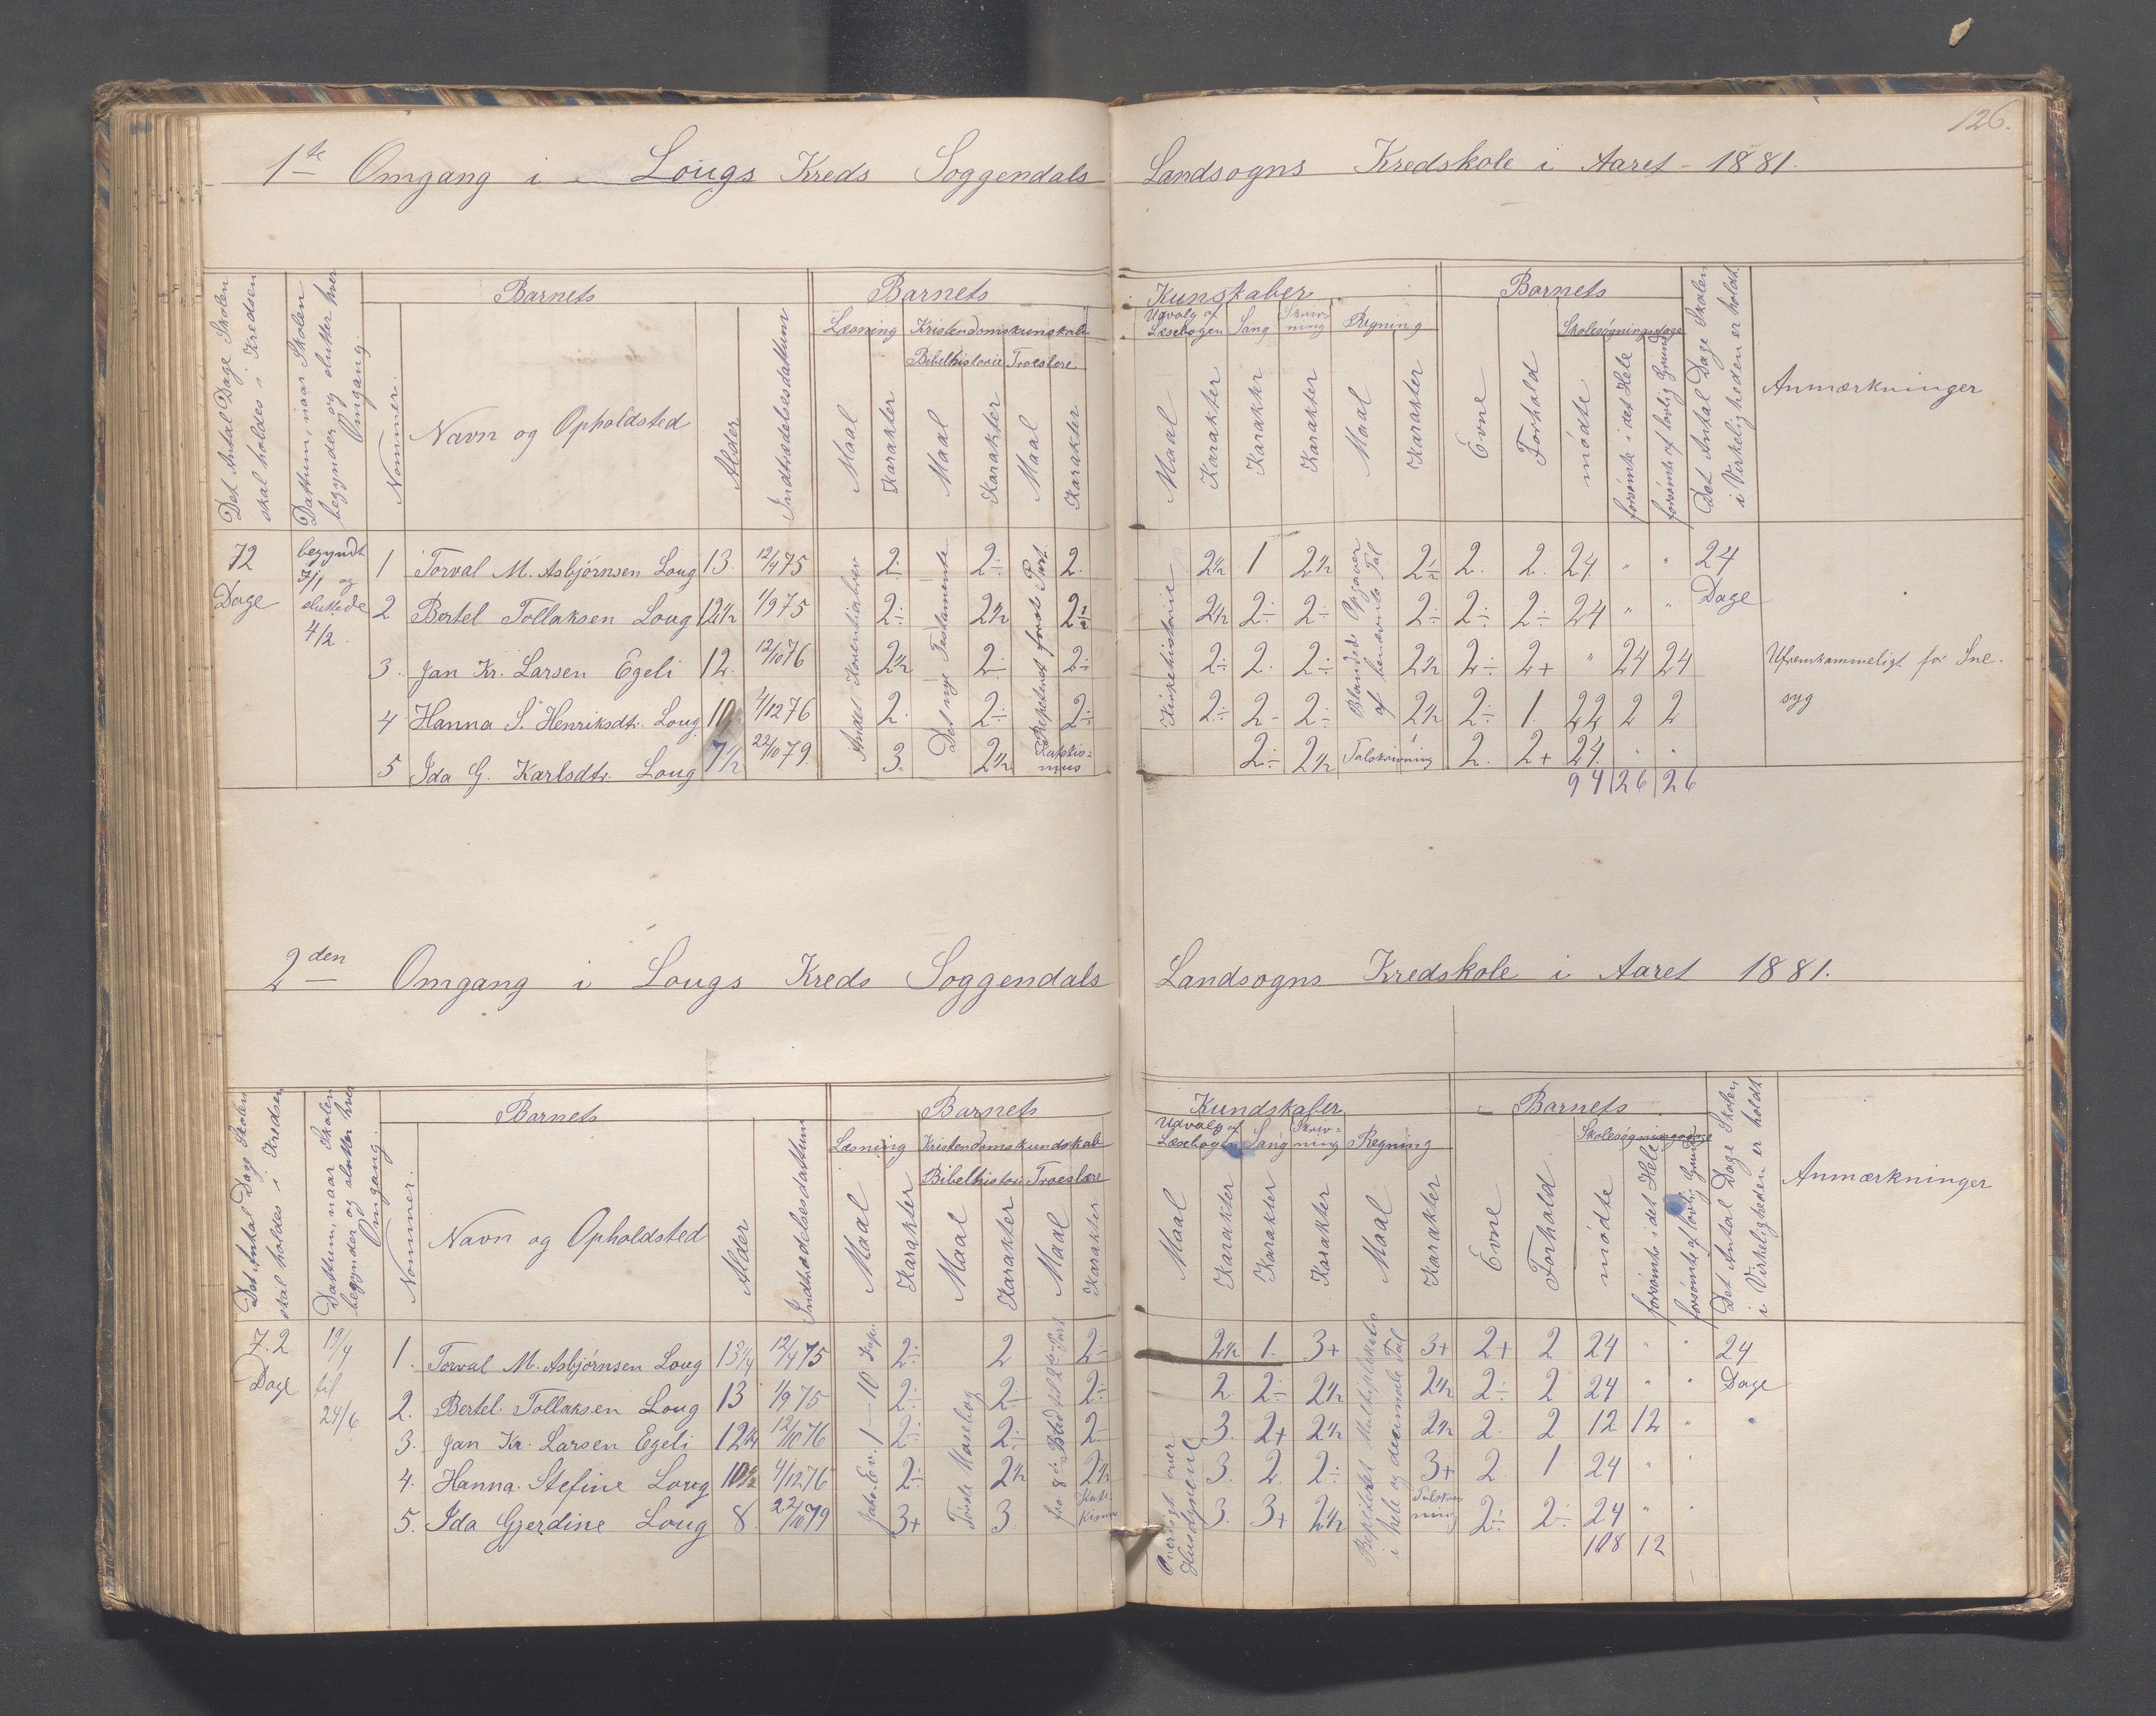 126.
1ste Omgang i Lougs Kreds Soggendals Landsogns Kredskole i Aaret 1881.
Det Antal Dage Skolen skal holdes i Kredsen
Dattum, naar Skolen begynder og slutter hver Omgang.
Barnets
Nommer.
Navn og Opholdsted
Alder
Indtrædelsesdattum
Barnets Kunskaber
Læsning
Maal
Karakter
Kristendomskunskab
Bibelhistorie
Maal
Karakter
Troeslære
Maal
Karakter
Udvalg af Læsebogen
Maal
Karakter
Sang
Karakter
Skrivning
Karakter
Regning
Maal
Karakter
Barnets
Evne
Forhold
Skolesøgningsdage
mødte
forsømte i det Hele
forsømte af lovlig Grund
Det Antal Dage Skolen i Virkeligheden er holdt
Anmærkninger
72 Dage
begyndt 7/1 og sluttede 4/2.
1 Torval M. Asbjørnsen Loug 13. 12/4 75 2. 2÷ 2. 2½ 1 2½ 2½ 2. 2. 24 " " 24 Dage
2 Bertel Tollaksen Loug 12½ 1/9 75 2÷ 2½ 2÷ 2½ 2÷ 2÷ 2÷ 2÷ 2÷ 24 " "
3. Jan Kr. Larsen Egeli 12. 12/10 76 2½ 2÷ 2÷ 2÷ 2. 2÷ 2½ 2÷ 2+ " 24 24 Ufremkommeligt for Sne.
4 Hanna S. Henriksdtr. Loug 10 4/12 76 2. 2÷ 2÷ 2÷ 2- 2÷ 2½ 2÷ 1. 22 2 2 syg
5 Ida G. Karlsdtr. Loug 7½ 22/10 79 3. 2½ Katekismus 2÷ 2½ Talskrivning 2. 2+ 24. " "
Andet Korentiabrev
Det nye Testamente
Repeteret første Part.
Kirkehistorie
Blandede Opgaver af benævnte Tal
94 26 26
2den Omgang i Lougs Kreds Soggendals Landsogns Kredskole i Aaret 1881.
Det Antal Dage Skolen skal holdes i Kredsen
Dattum, naar Skolen begynder og slutter hver Omgang.
Barnets
Nommer.
Navn og Opholdsted
Alder
Indtrædelsesdattum
Barnets Kundskaber
Læsning
Maal
Karakter
Kristendomskundskab
Bibelhistorie
Maal
Karakter
Troeslære
Maal
Karakter
Udvalg af Læsebogen
Maal
Karakter
Sang
Karakter
Skrivning
Karakter
Regning
Maal
Karakter
Barnets
Evne
Forhold
Skolesøgningsdage
mødte
forsømte i det Hele
forsømte af lovlig Grund
Det Antal Dage Skolen i Virkeligheden er holdt
Anmærkninger
72 Dage
til 24/6
1. Torval M. Asbjørnsen Loug 13¼ 12/4 75 2÷ 2 2÷ 2½ 1. 3+ 3+ 2+ 2 24 " " 24 Dage
2. Bertel Tollaksen Loug 13 1/9 75 2÷ 2÷ 2÷ 2. 2÷ 2½ 2½ 2÷ 2 24 " "
3. Jan Kr. Larsen Egeli 12 12/10 76 2÷ 2÷ 2÷ 3. 2+ 2½ 2½ 2. 2 12 12 " "
4. Hanna Stefine Loug 10½ 4/12 76 2÷ 2½ 2½ 3. 2. 2÷ 3+ 2. 1 24 " "
5. Ida Gjerdine Loug 8. 22/10 79 3+ 3. Katekismus 3. 3+ 2½ Talskrivning 2÷ 2÷ 24 " "
Joh. Ev. 1–10 Kap.
Første Mosebog
Oversigt over Husdyrene
Repeteret Multiplikation i hele og decimale Tal
108 12